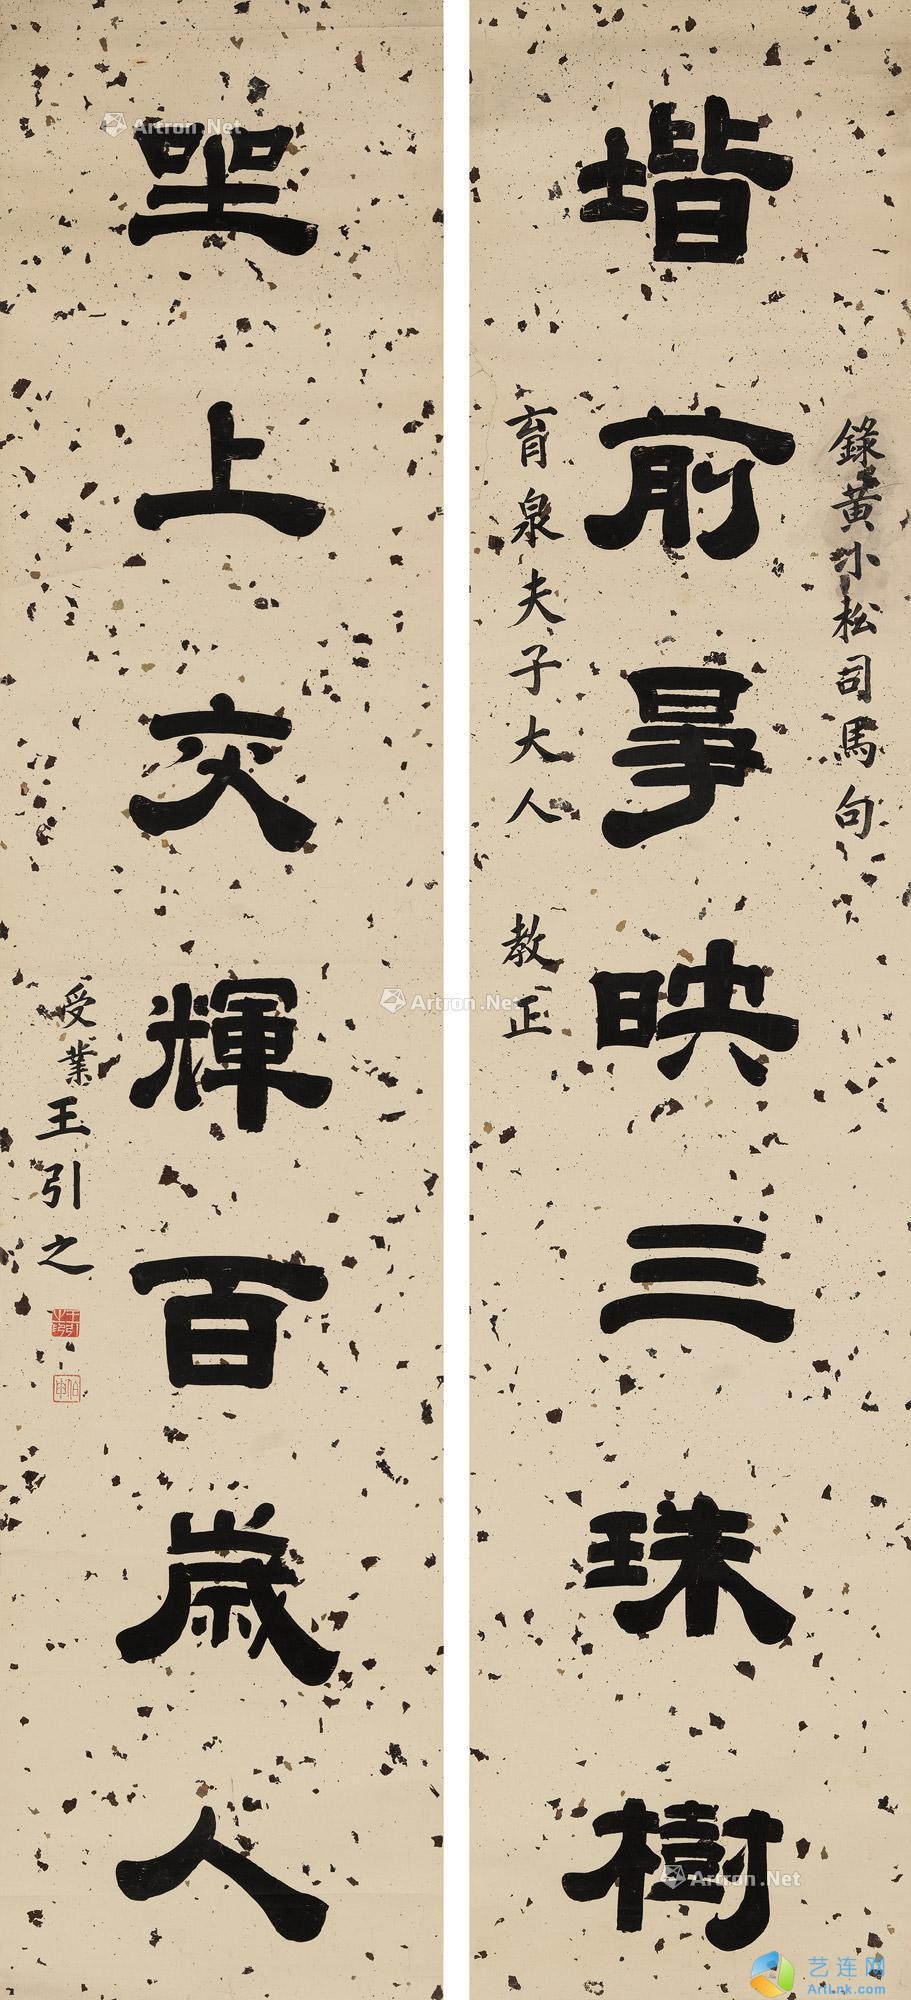 堦前映三珠樹
錄黃小松司馬句
育泉夫子大人 教正
坐上交輝百歲人
受業王引之
王引之印
伯申
Artron.Net
Artron.Net
Artron.Net
艺连网
ArtLnk.com